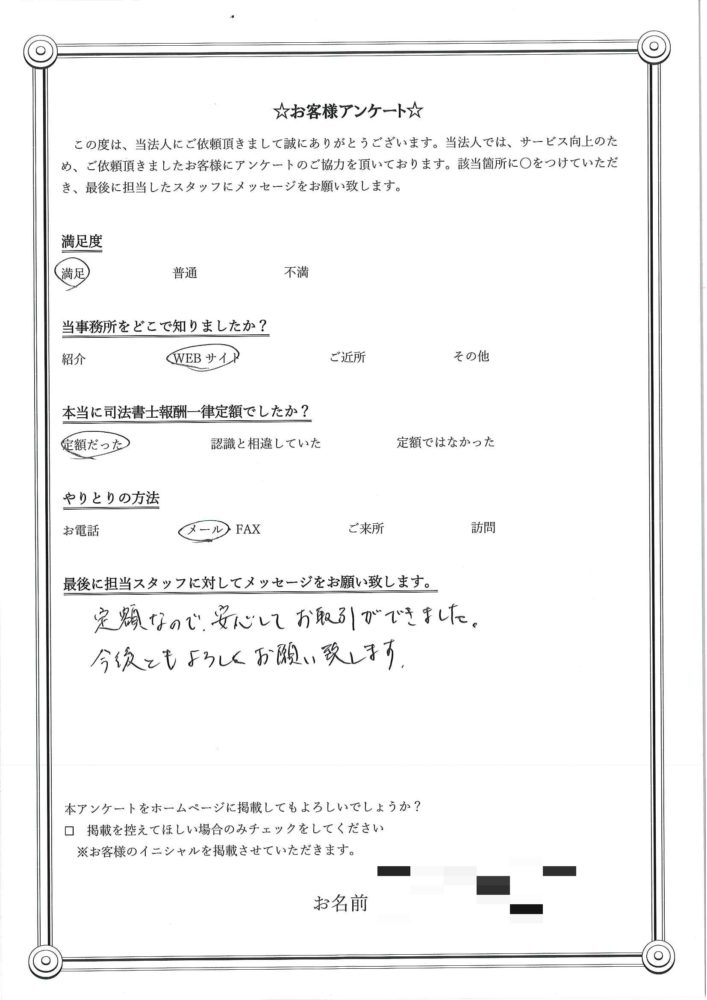 ☆お客様アンケート☆
この度は、当法人にご依頼頂きまして誠にありがとうございます。当法人では、サービス向上のた
め、ご依頼頂きましたお客様にアンケートのご協力を頂いております。該当箇所に〇をつけていただ
き、最後に担当したスタッフにメッセージをお願い致します。
満足度
満足 普通 不満
当事務所をどこで知りましたか？
紹介 WEBサイト ご近所 その他
本当に司法書士報酬一律定額でしたか？
定額だった 認識と相違していた 定額ではなかった
やりとりの方法
お電話 メール・FAX ご来所 訪問
最後に担当スタッフに対してメッセージをお願い致します。
定額なので、安心してお取引ができました。
今後ともよろしくお願い致します。
本アンケートをホームページに掲載してもよろしいでしょうか？
□ 掲載を控えてほしい場合のみチェックをしてください
※お客様のイニシャルを掲載させていただきます。
お名前